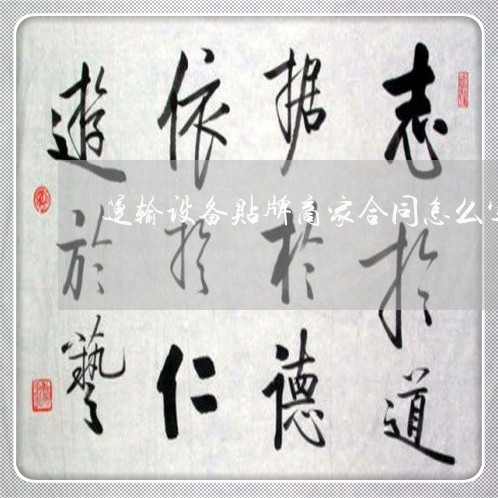 志於道
据於德
依於仁
遊於藝
運输设备贴牌商家合同怎么